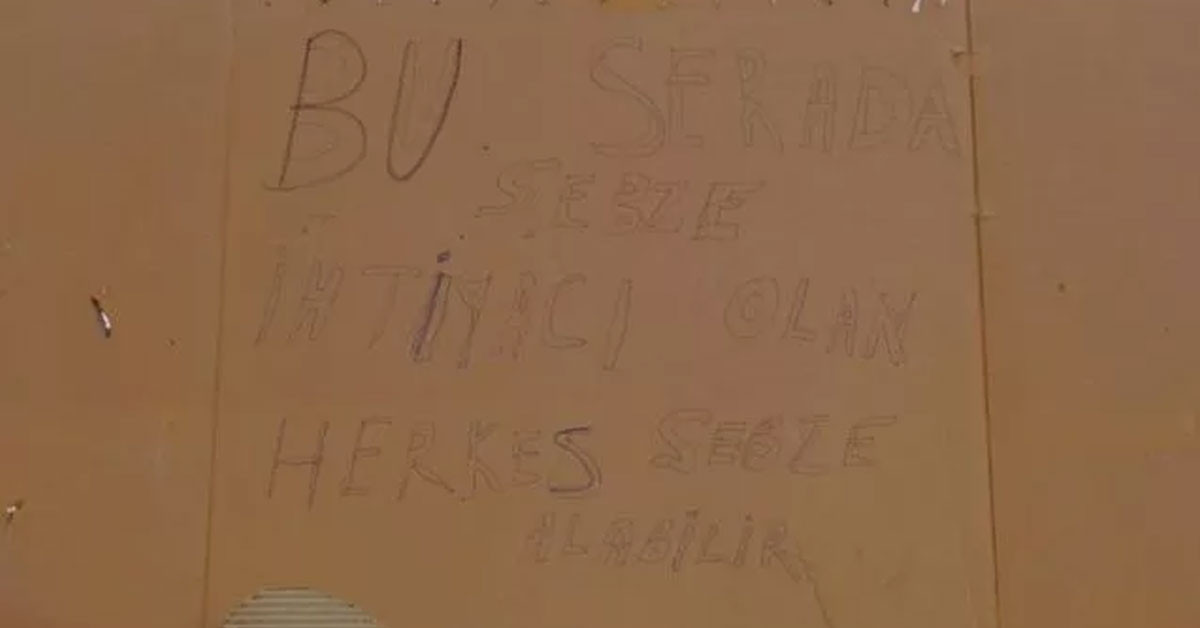 BU SERADA
SEBZE
İHTİYACI OLAN
HERKES SEBZE
ALABİLİR